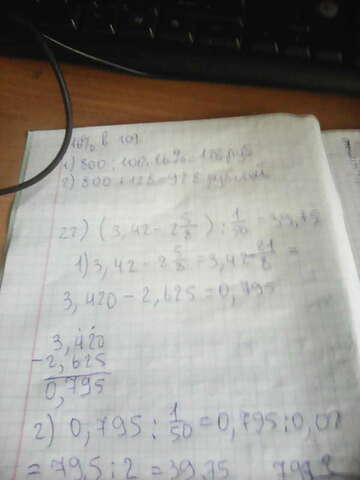 16% в год
1) 800 : 100 · 16% = 128 руб
2) 800 + 128 = 928 рублей
22) (3,42 - 2 5/8) : 1/50 = 39,75
1) 3,42 - 2 5/8 = 3,42 - 21/8 =
3,420 - 2,625 = 0,795
3,420
- 2,625
0,795
2) 0,795 : 1/50 = 0,795 : 0,02
= 79,5 : 2 = 39,75